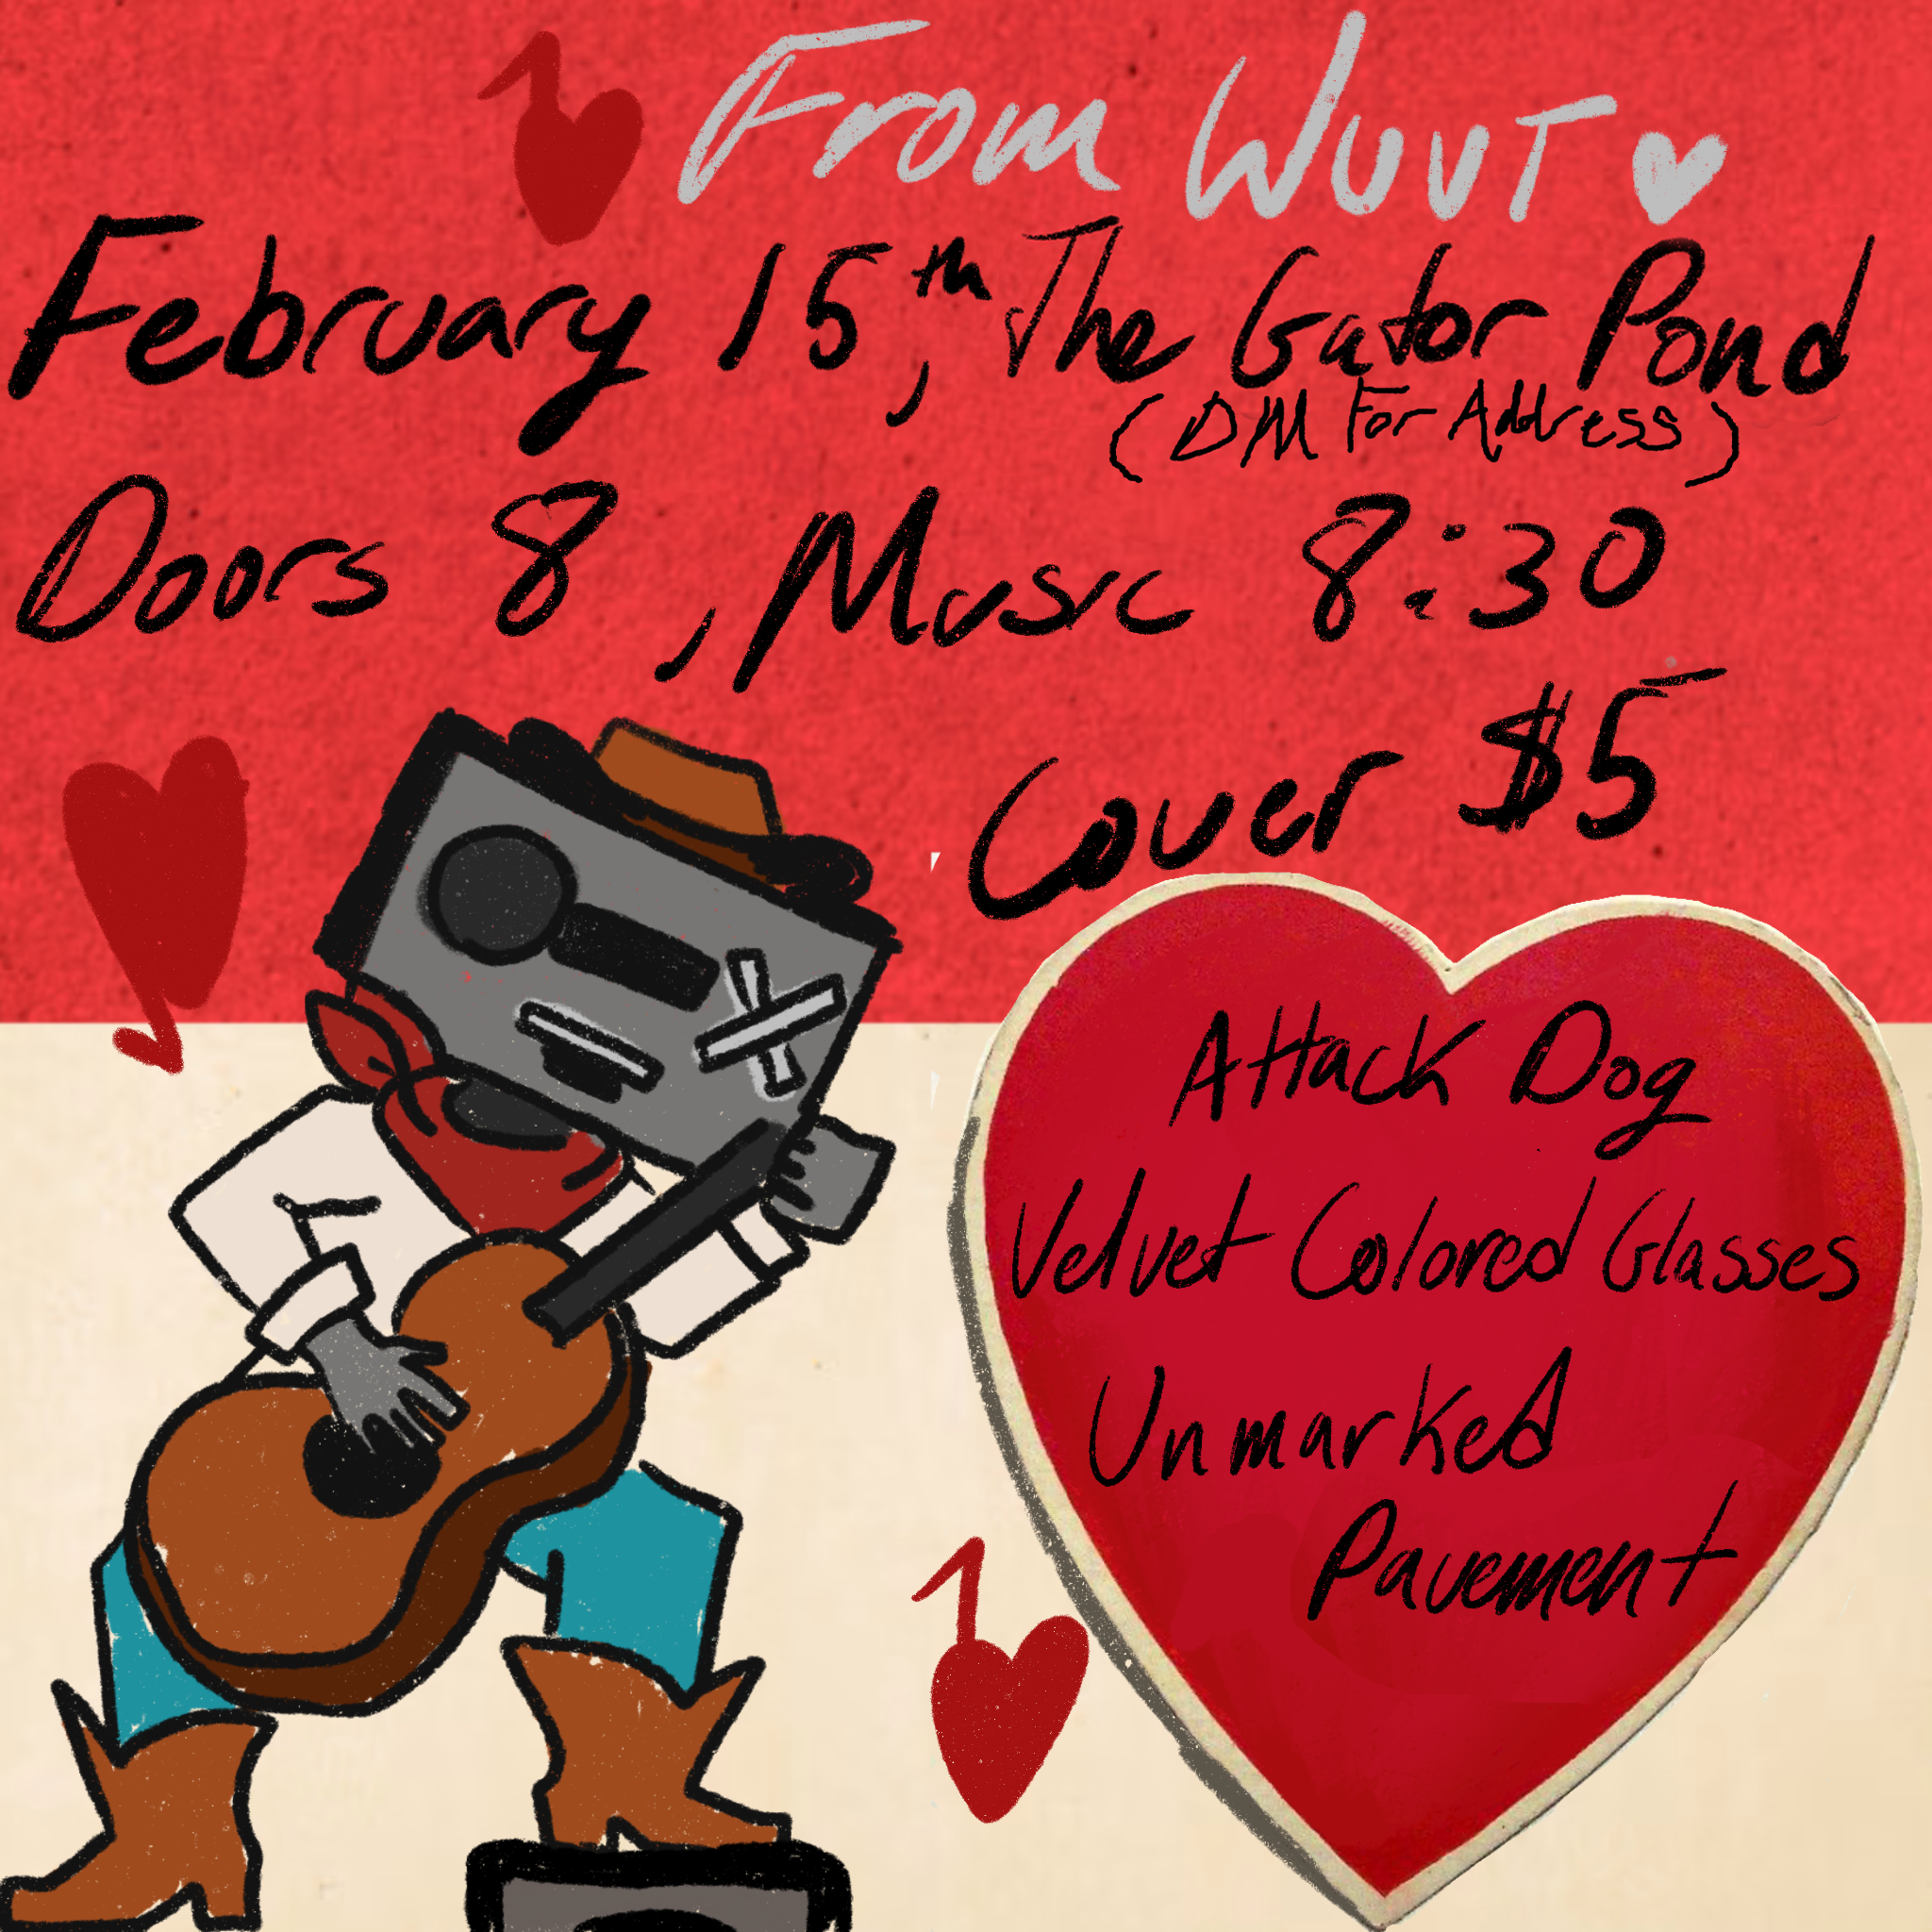 From WUVT
February 15th, The Gator Pond
(DM For Address)
Doors 8, Music 8:30
Cover $5
Attack Dog
Velvet Colored Glasses
Unmarked
Pavement